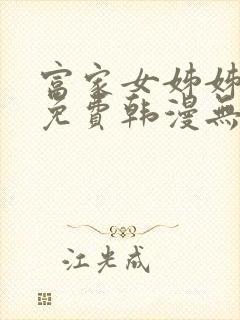 富家女姊姊
免費韩漫無
江光成